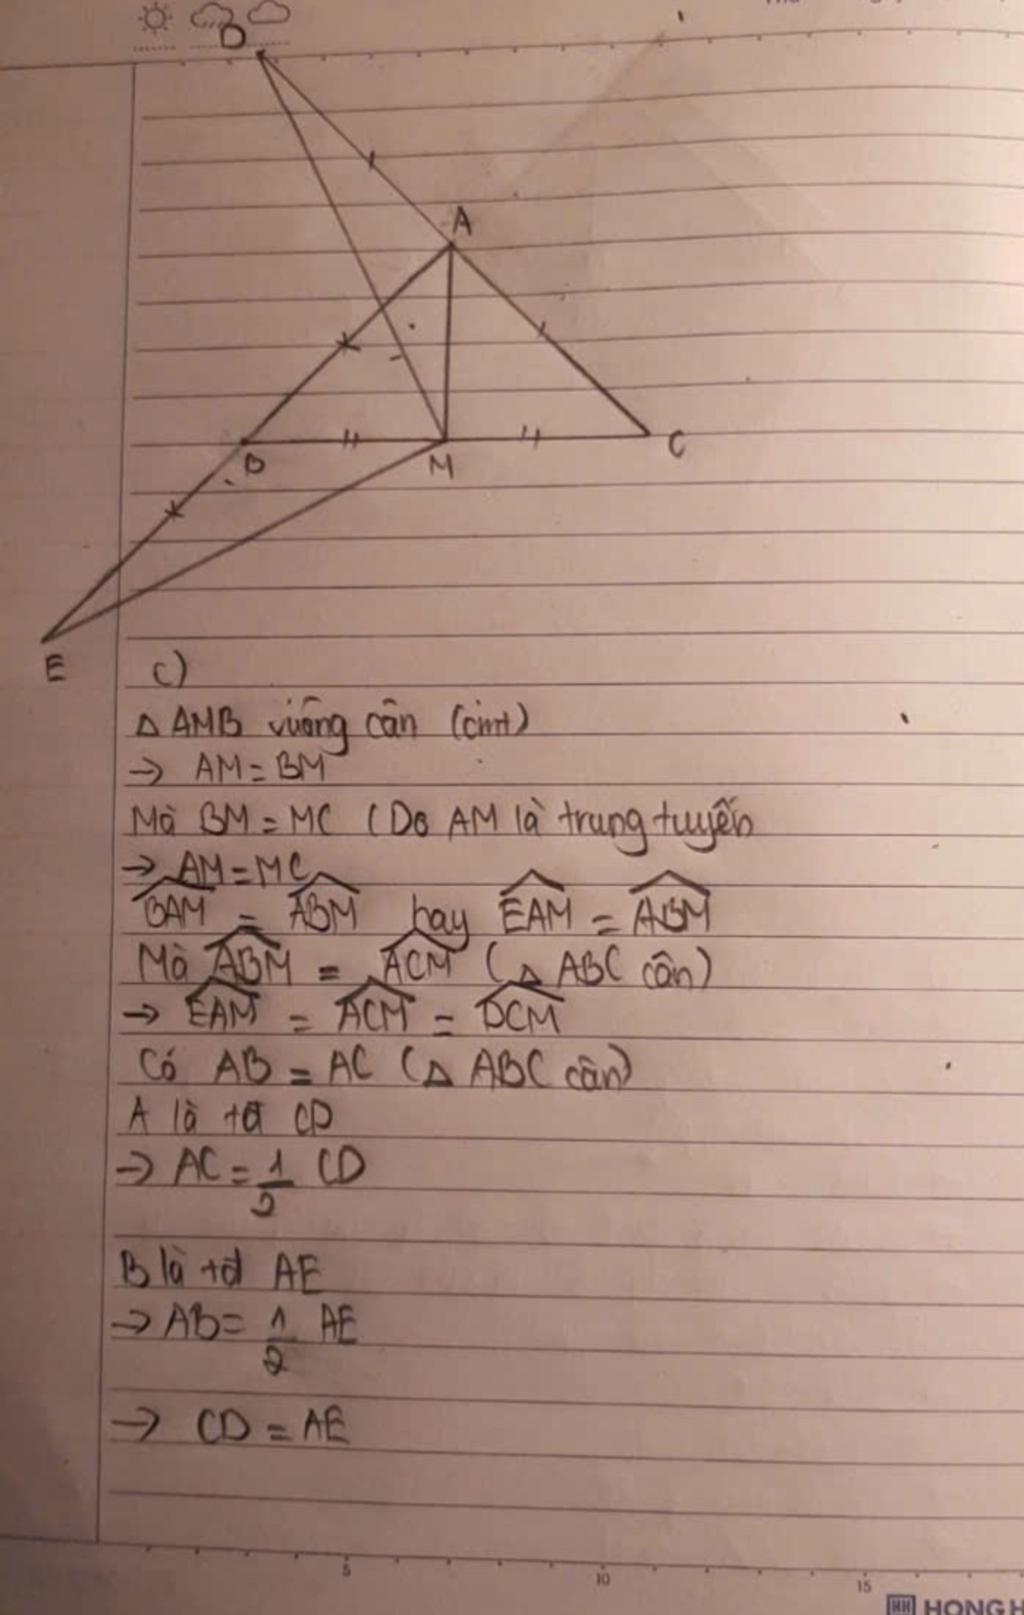 D
A
B
M
C
E
c)
Δ AMB vuông cân (cmt)
→ AM = BM
Mà BM = MC (Do AM là trung tuyến
→ AM = MC
BAM = ABM hay EAM = ABM
Mà ABM = ACM (Δ ABC cân)
→ EAM = ACM = DCM
Có AB = AC (Δ ABC cân)
A là tđ CD
→ AC = 1/2 CD
B là tđ AE
→ AB = 1/2 AE
→ CD = AE
5 10 15
HH HONG H